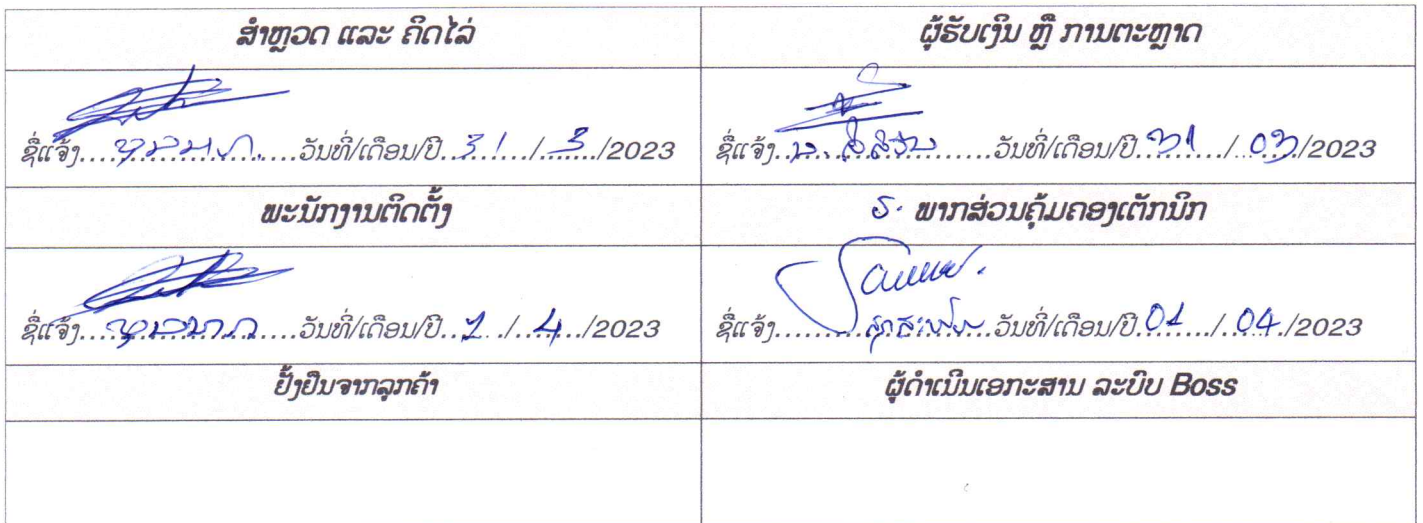 ສຳຫຼວດ ແລະ ຄິດໄລ່
ຜູ້ຮັບເງິນ ຫຼື ການຕະຫຼາດ
ຊື່ແຈ້ງ....................ວັນທີ່/ເດືອນ/ປີ..31../..3../2023
ຊື່ແຈ້ງ....................ວັນທີ່/ເດືອນ/ປີ..31../..03../2023
ພະນັກງານຕິດຕັ້ງ
ຮ. ພາກສ່ວນຄຸ້ມຄອງເຕັກນິກ
ຊື່ແຈ້ງ....................ວັນທີ່/ເດືອນ/ປີ..1../..4../2023
ຊື່ແຈ້ງ....................ວັນທີ່/ເດືອນ/ປີ..01../..04../2023
ຢັ້ງຢືນຈາກລູກຄ້າ
ຜູ້ດຳເນີນເອກະສານ ລະບົບ Boss